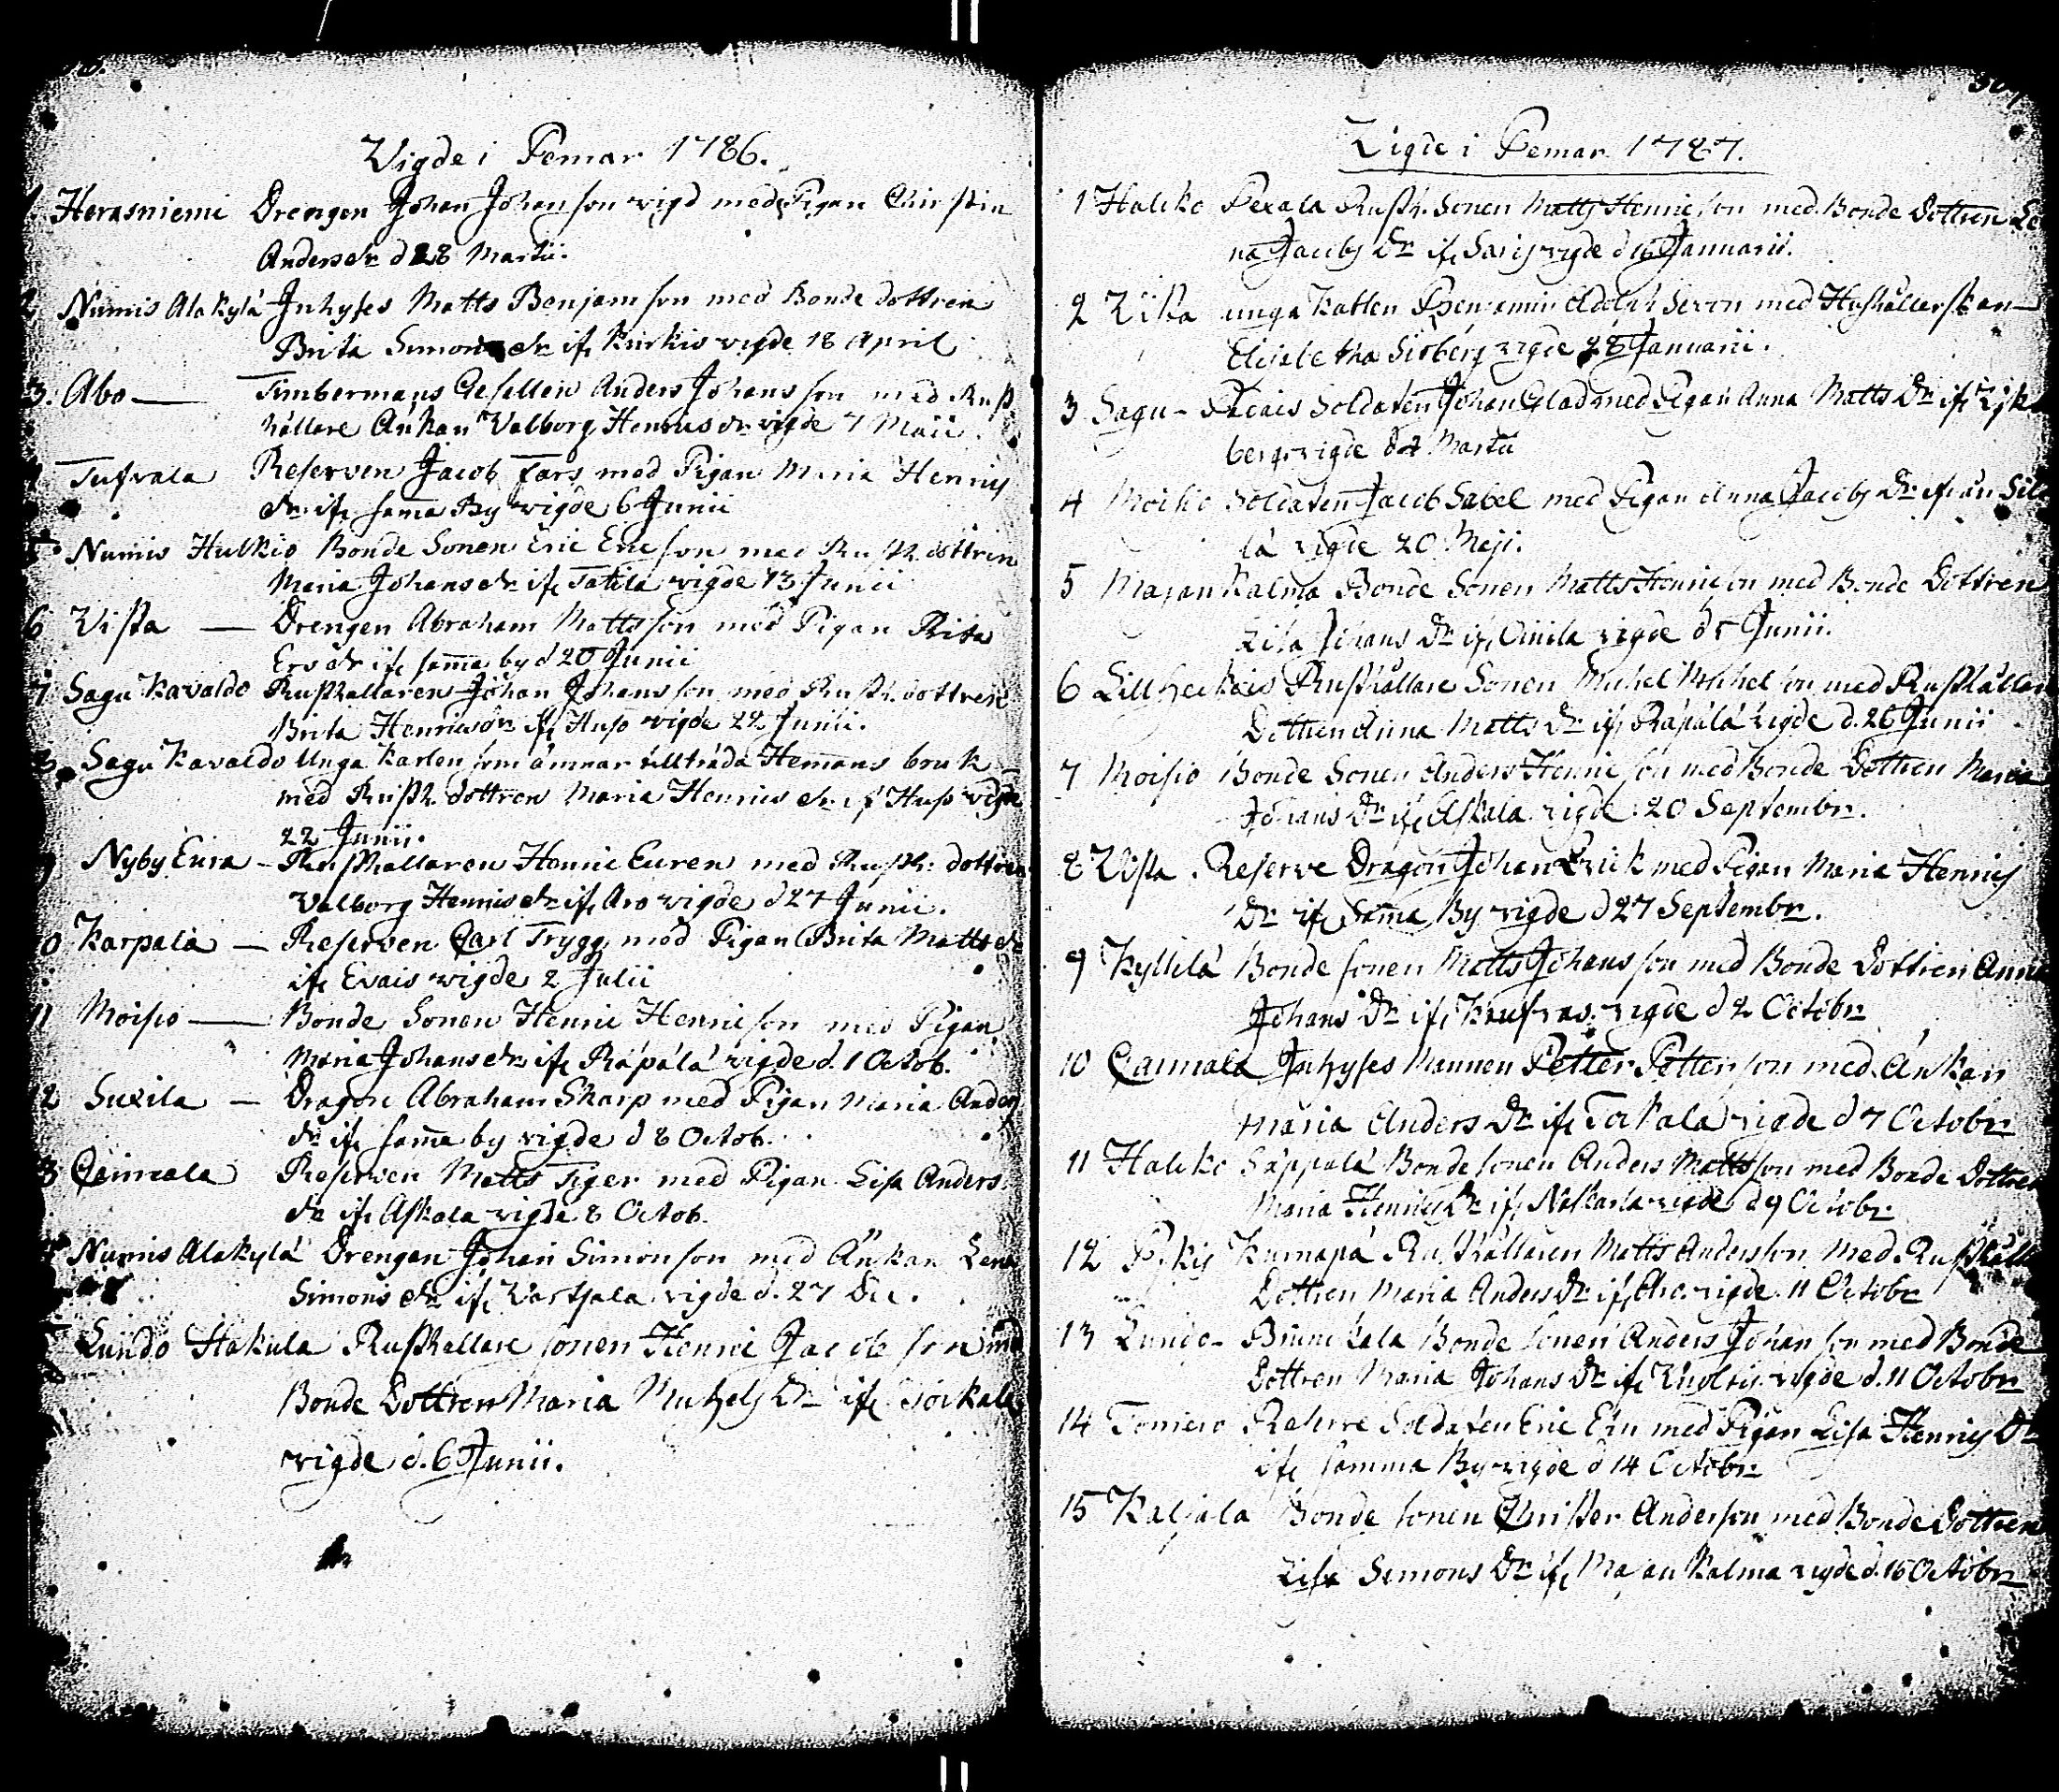 Vigde i Pemar 1786.
1 Herasniemi Drengen Johan Johansson vigd med Pigan Christin
Andersdr d 28 Martii.
2 Numis Alakylä Inhyses Matts Benjamson med Bonde dottren
Brita Simonsdr ifr Kurkis vigde 18 April
3. Åbo — Timbermans Gesellen Anders Johansson med Rust
hållare Änkan Valborg Henricsdr vigde 7 Maii.
Tufvala Reserven Jacob Fars med Pigan Maria Henrics
dr ifr sama By vigde 6 Junii
Numis Hulkio Bonde Sonen Eric Ericsson med Rusth. dottren
Maria Johansdr ifr Tatila vigde 13 Junii
6 Vista — Drengen Abraham Mattsson med Pigan Brita
Ersdr ifr sama by d 20 Junii
7 Sagu Kavaldo Rusthallaren Johan Johansson med Rusth. dottren
Brita Henricsdr ifr Husö vigde 22 Junii.
8 Sagu Kavaldo Unga Karlen som ämnar tillträda Hemans bruk
med Rusth. dottren Maria Henrics dr if Husö vigde
22 Junii.
9 Nyby Eura – Rusthallaren Henric Euren med Rusth. dottren
Valborg Henricsdr ifr Aro vigde d 27 Junii.
0 Karpala — Reserven Carl Trygg med Pigan Brita Mattsdr
ifr Evais vigde 2 Julii
11 Moisio — Bonde Sonen Henric Henricson med Pigan
Maria Johansdr ifr Räpälä vigde d. 1 Octob.
12 Suxila — Dragon Abraham Skarp med Pigan Maria Anders
dr ifr sama by vigde d 8 Octob.
3 Caimala Reserven Matts Tiger med Pigan Lisa Anders
dr ifr Askala vigde 8 Octob.
Numis Alakylä Drengen Johan Simonson med Änkan Lena
Simons dr ifr Vartsala vigde d. 27 Dec.
Lundo Hakula Rusthallare sonen Henric Jacobsson med
Bonde Dottren Maria Michels Dr ifr Torkala
vigde d. 6 Junii.
Vigde i Pemar 1787.
1 Haliko Pexala Rusth. Sonen Matts Henricson med Bonde Dottren Le
na Jacobs Dr ifr vigde d 16 Januarii.
2 Vista unga Karlen Benjamin Adolph med Hushållerskan
Elisabetha Siöberg vigde 28 Januarii.
3 Sagu – Soldaten Johan Glad med Pigan Anna Matts Dr ifr
berg vigde d 4 Martii
4 Moisio Soldaten Jacob Sabel med Pigan Anna Jacobs Dr ifrån
lä vigde 20 Maji.
5 Majankalma Bonde Sonen Matts Henricson med Bonde Dottren
Lisa Johans Dr ifr vigde d 5 Junii.
6 Lillheikois Rusthållare Sonen Michel Michelson med Rusthållare
Dottren Anna Matts Dr ifr Räpälä vigde d. 26 Junii
7 Moisio Bonde Sonen Anders Henricson med Bonde Dottren Maria
Johans Dr ifr Askala vigde 20 Septembr.
8 Vista. Reserve Dragon Johan med Pigan Maria Henrics
Dr ifr Sama By vigde d 27 Septembr.
9 Kyllilä Bonde sonen Matts Johansson med Bonde Dottren Anna
Johans Dr ifr vigde d 2 Octobr
10 Caimala Inhyses Mannen Petter Petterson med Änkan
Maria Anders Dr ifr Torkala vigde d 7 Octobr
11 Haliko Säppälä Bonde sonen Anders Mattsson med Bonde Dottren
Maria Henrics Dr ifr vigde d 9 Octobr
12 Pikis Rusthållaren Matts Anderson med Rusthålla
Dottren Maria Anders Dr ifr Aro vigde 11 Octobr
13 Lundo – Bonde sonen Anders Johanson med Bonde
Dottren Maria Johans Dr ifr vigde d. 11 Octobr
14 Soldaten Eric med Pigan Lisa Henrics Dr
ifr samma By vigde d 14 Octobr
15 Kaljala Bonde sonen Christer Anderson med Bonde Dottren
Lisa Simons Dr ifr Majankalma vigde d. 16 Octobr